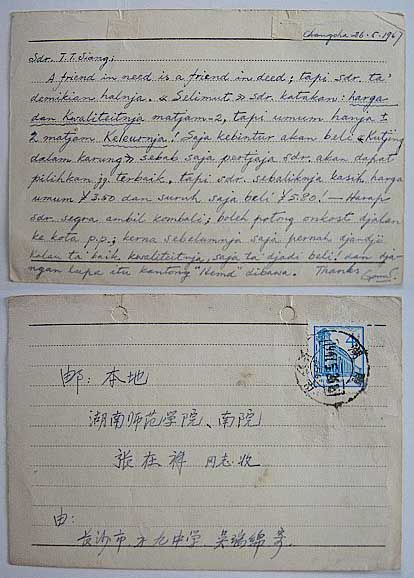 Changsha 26-5-1967
Sdr. T.T. Siang;
A friend in need is a friend in deed; tapi sdr. ta'
demikian halnja. « Selimut » sdr. katakan: harga
dan Kwaliteitnja matjam-2, tapi umum hanja ±
2 matjam Keleurnja! Saja kebintur akan beli « Kutjing
dalam karung » sebab saja pertjaja sdr. akan dapat
pilihkan jg. terbaik, tapi sdr. sebaliknja kasih harga
umum ¥3.50 dan suruh saja beli ¥5.80! — Harap
sdr. segra ambil kombali; boleh potong onkost djalan
ke kota p.p.; kerna sebelumnja saja pernah djandji
kalau ta' baik kwaliteitnja, saja ta' djadi beli! dan dja-
ngan lupa itu kantong "Hemd" dibawa. Thanks
邮: 本地
湖南师范学院、南院
张在祥 同志收
由:
长沙市 十九中学 吴瑞绵 寄